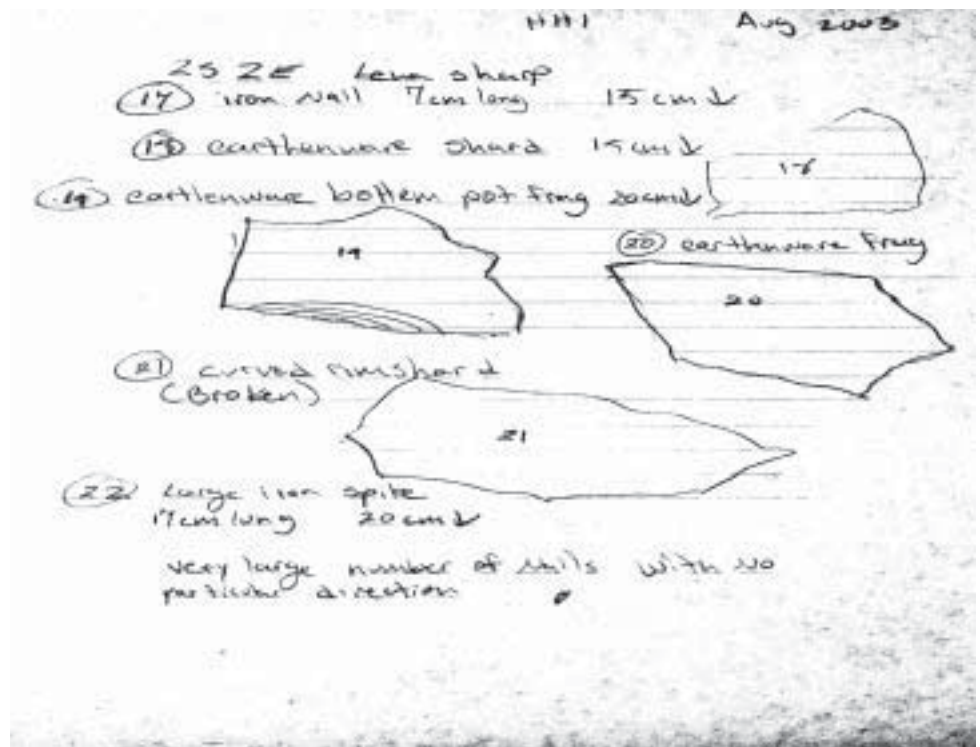 HH1 Aug 2003
2S 2E Lena sharp
17 iron Nail 7cm long 15cm↓
18 earthenware shard 15cm↓
18
19 earthenware bottem pot frag 20cm↓
19
20 earthenware Frag
20
21 curved rimshard
(Broken)
21
22 Large iron spike
17cm lung 20cm↓
very large number of Nails with No
particular direction